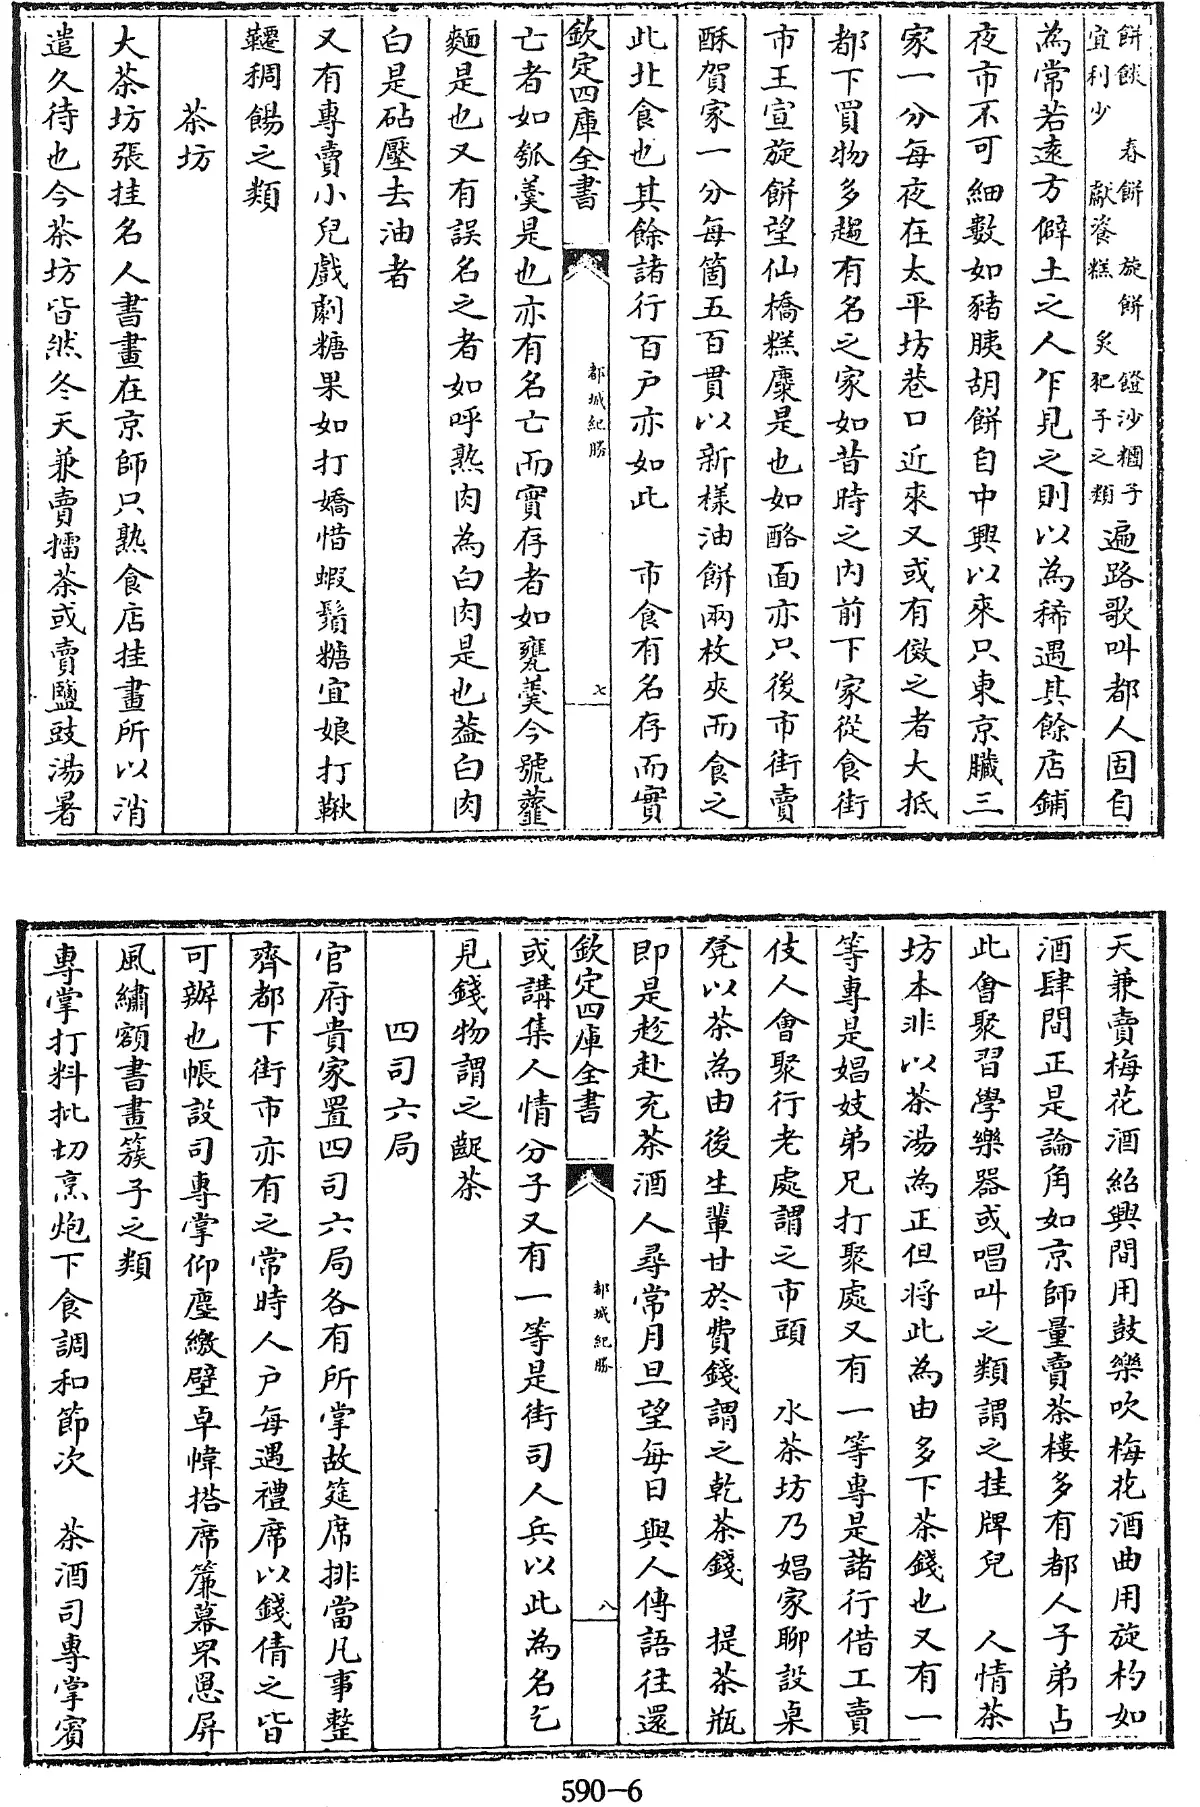 餅餤　春餅　旋餅　䥥沙糰子
宜利少　獻餈糕　炙犯子之類
遍路歌叫都人固自
為常若遠方僻土之人乍見之則以為稀遇其餘店鋪
夜市不可細數如豬胰胡餅自中興以來只東京臟三
家一分每夜在太平坊巷口近來又或有俲之者大抵
都下買物多趨有名之家如昔時之内前下家從食街
市王宣旋餅望仙橋糕糜是也如酪面亦只後市街賣
酥賀家一分每箇五百貫以新様油餅兩枚夾而食之
此北食也其餘諸行百户亦如此　市食有名存而實
欽定四庫全書
都城紀勝
七
亡者如瓠羮是也亦有名亡而實存者如甕羮今號虀
麵是也又有誤名之者如呼熟肉為白肉是也葢白肉
白是砧壓去油者
又有專賣小兒戲劇糖果如打嬌惜蝦鬚糖宜娘打鞦
韆稠餳之類
茶坊
大茶坊張挂名人書畫在京師只熟食店挂畫所以消
遣久待也今茶坊皆然冬天兼賣擂茶或賣鹽豉湯暑
天兼賣梅花酒紹興間用鼓樂吹梅花酒曲用旋杓如
酒肆間正是論角如京師量賣茶樓多有都人子弟占
此會聚習學樂器或唱叫之類謂之挂牌兒　人情茶
坊本非以茶湯為正但將此為由多下茶錢也又有一
等專是娼妓弟兄打聚處又有一等專是諸行借工賣
伎人會聚行老處謂之市頭　水茶坊乃娼家聊設桌
凳以茶為由後生輩甘於費錢謂之乾茶錢　提茶瓶
即是趁赴充茶酒人尋常月旦望每日與人傳語往還
欽定四庫全書
都城紀勝
八
或講集人情分子又有一等是街司人兵以此為名乞
見錢物謂之齪茶
四司六局
官府貴家置四司六局各有所掌故筵席排當凡事整
齊都下街市亦有之常時人户每遇禮席以錢倩之皆
可辦也帳設司專掌仰塵繳壁卓幃搭席簾幕罘罳屏
風繡額書畫簇子之類
專掌打料批切烹炮下食調和節次　茶酒司專掌賓
590-6